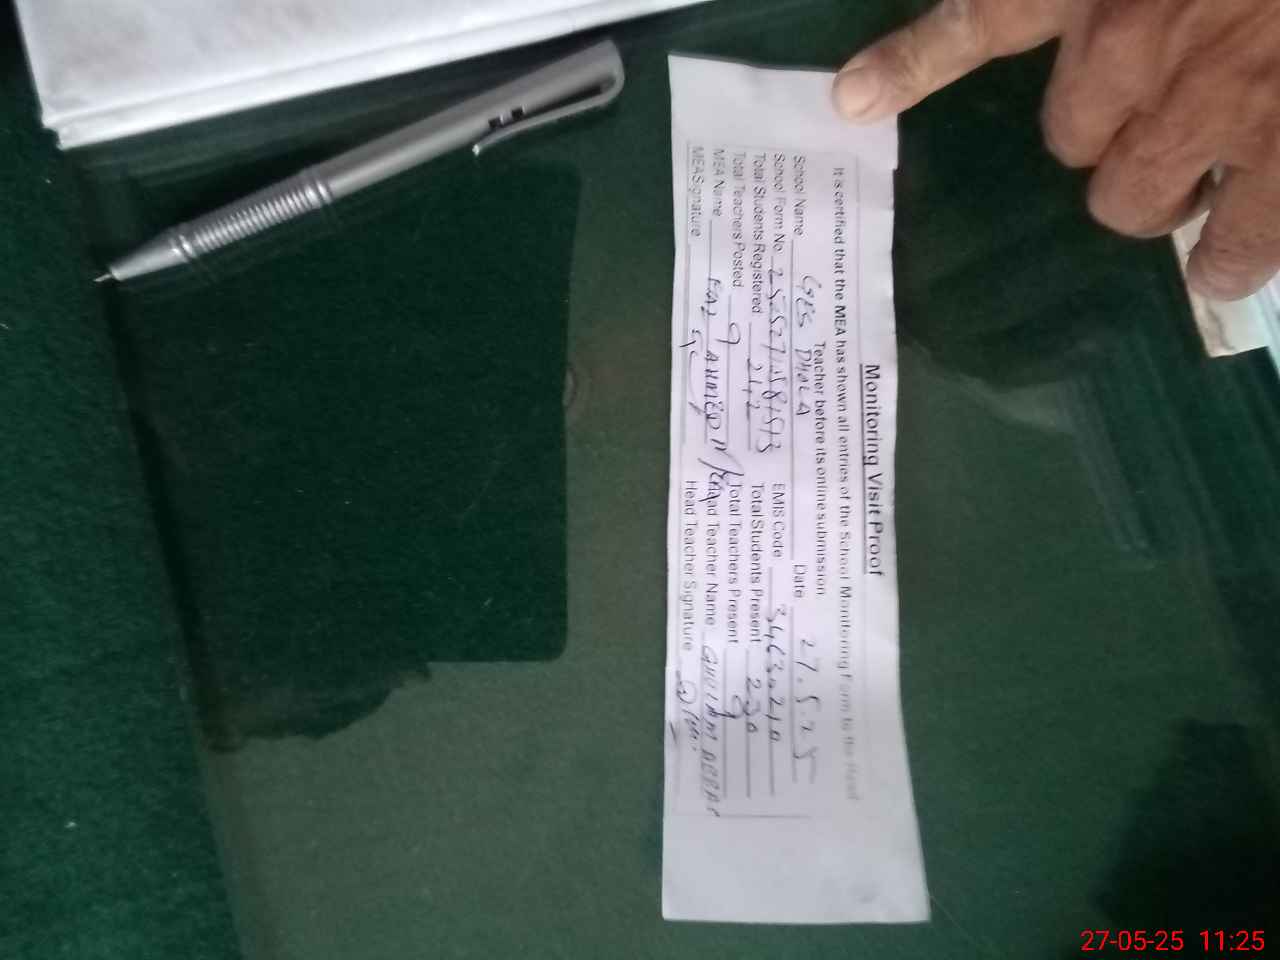 Monitoring Visit Proof
It is certified that the MEA has shown all entries of the School Monitoring Form to the Head
Teacher before its online submission
School Name GES DHOLA Date 27.5.25
School Form No. EMIS Code
Total Students Registered 242 Total Students Present 230
Total Teachers Posted 9 Total Teachers Present 9
MEA Name AHMED Head Teacher Name GHULAM
MEA Signature Head Teacher Signature
27-05-25 11:25